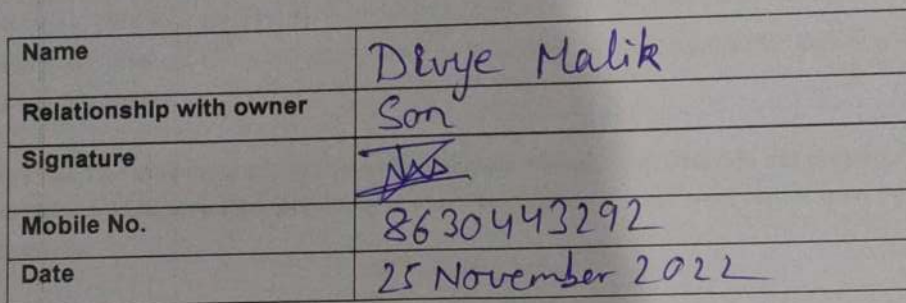 Name Divye Malik
Relationship with owner Son
Signature
Mobile No. 8630443292
Date 25 November 2022